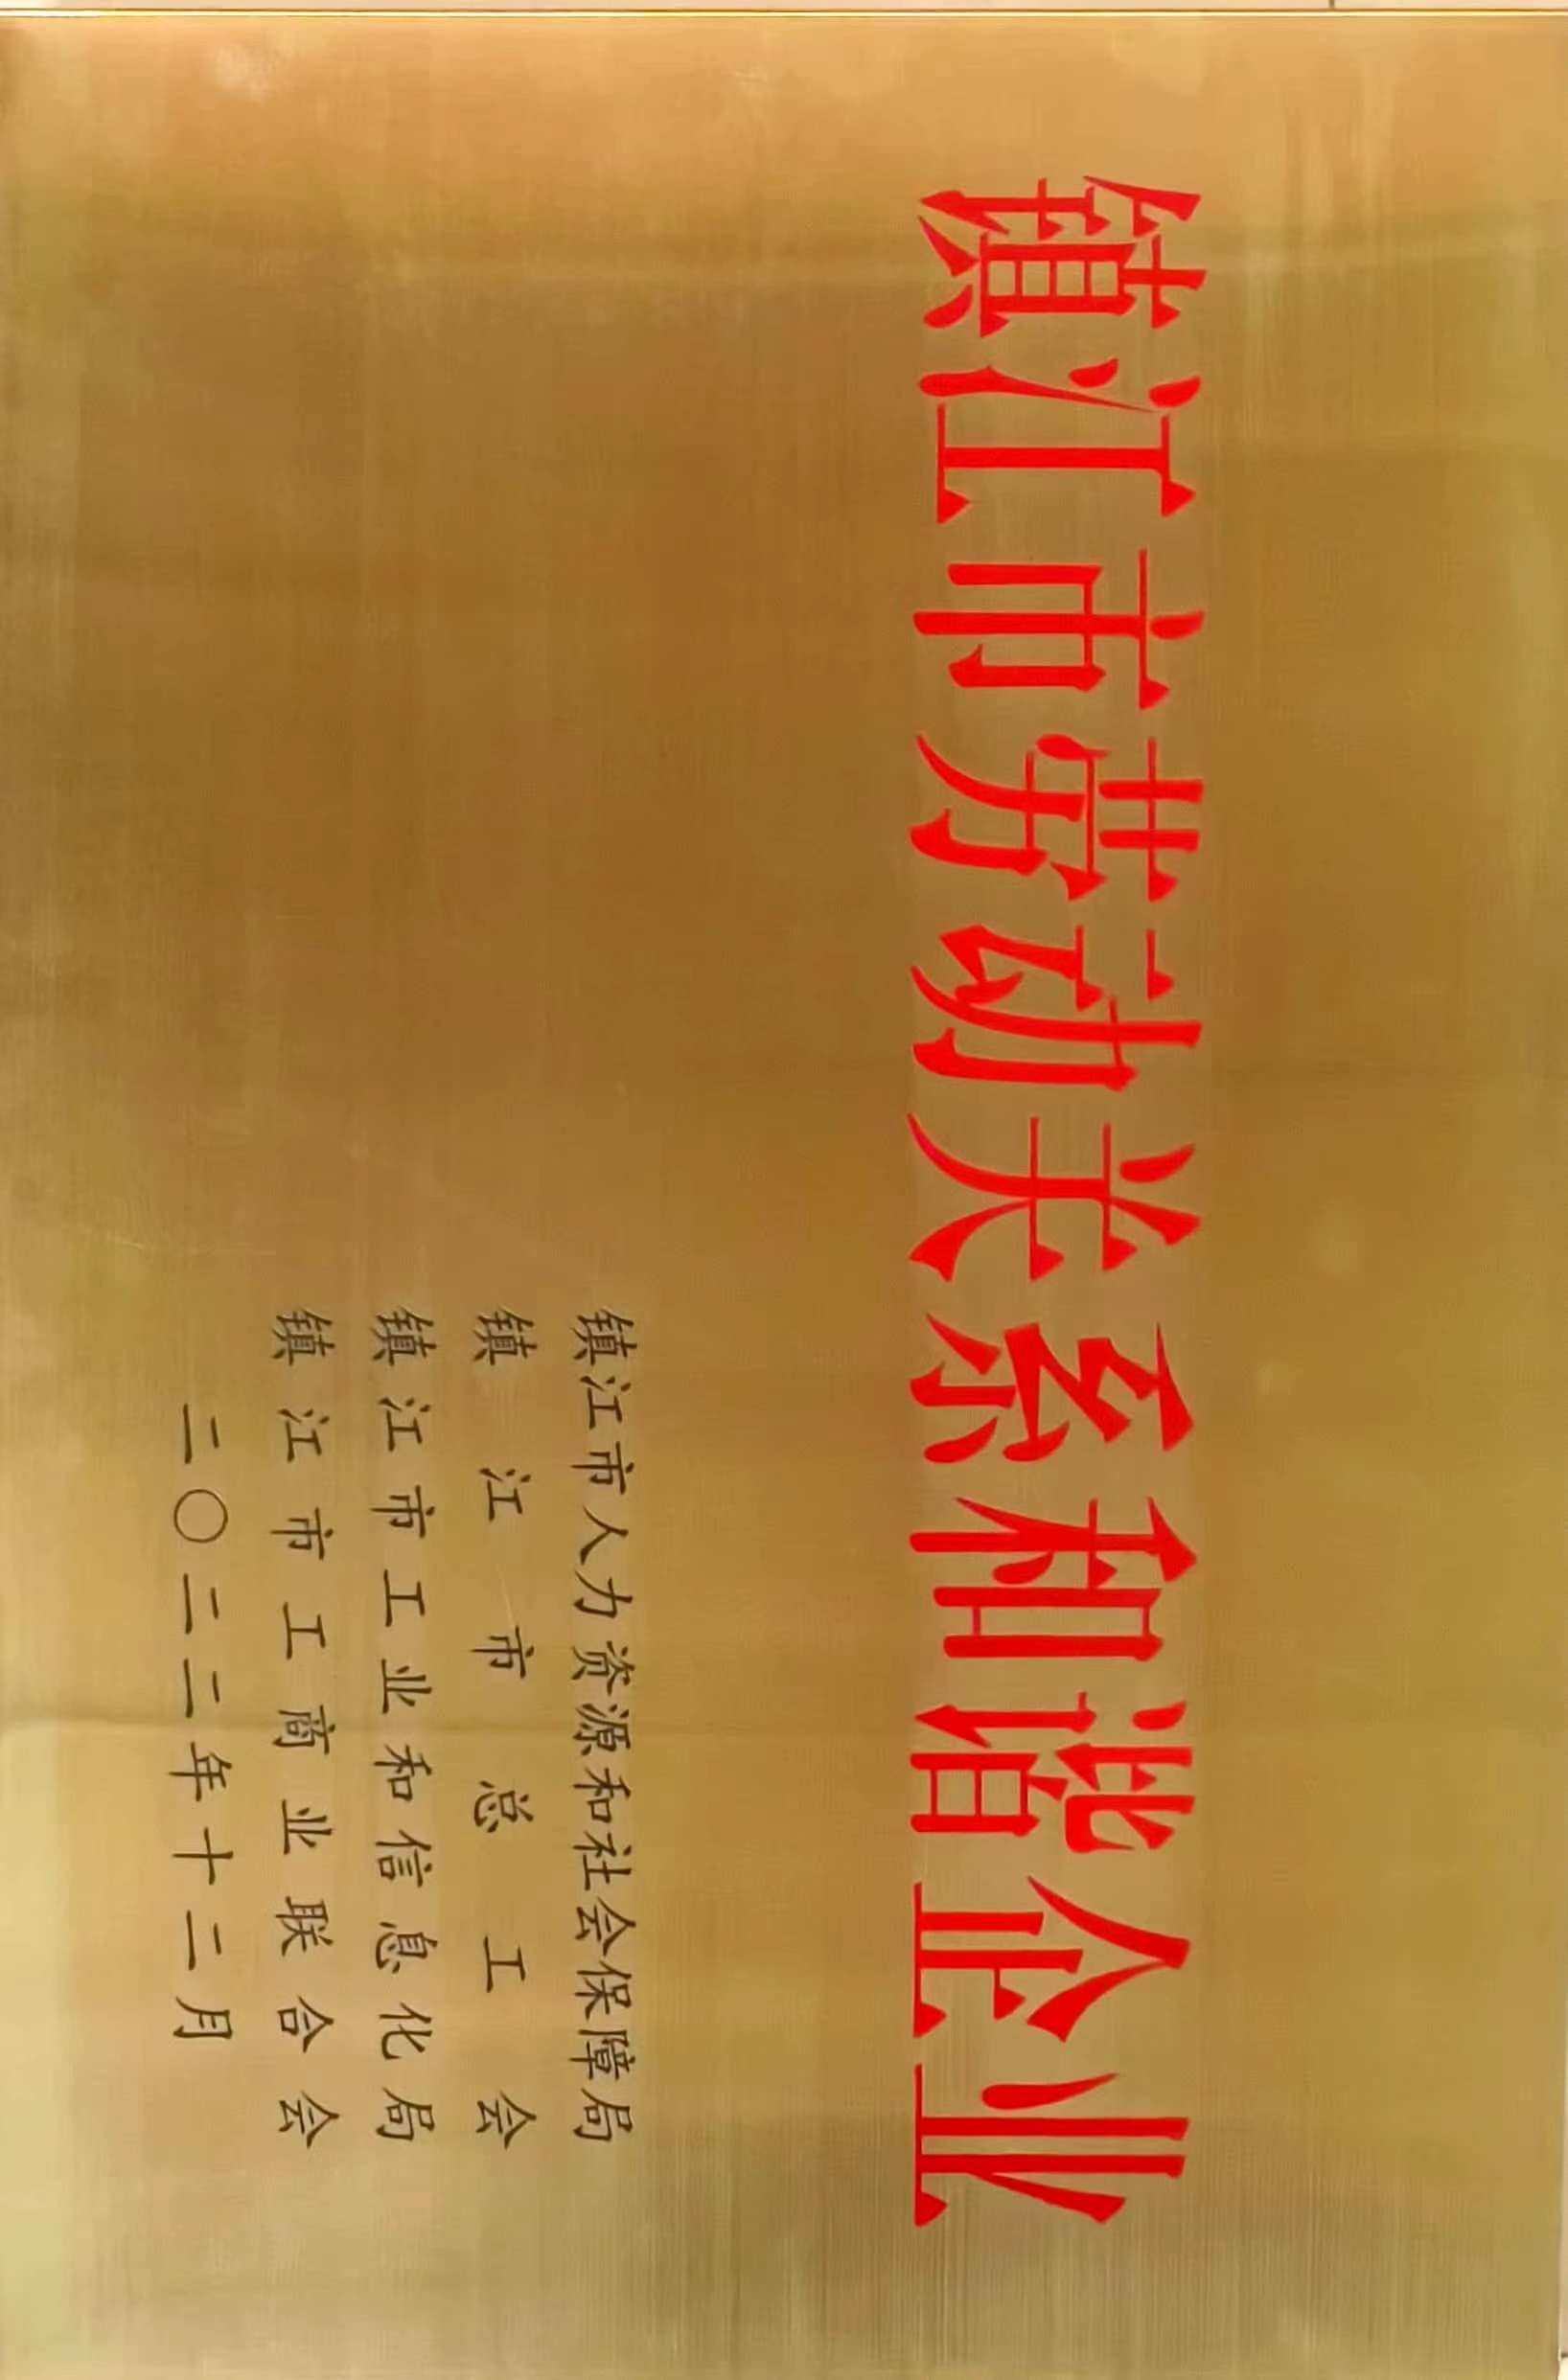 镇江市劳动关系和谐企业
镇江市人力资源和社会保障局
镇江市总工会
镇江市工业和信息化局
镇江市工商业联合会
二〇二二年十二月